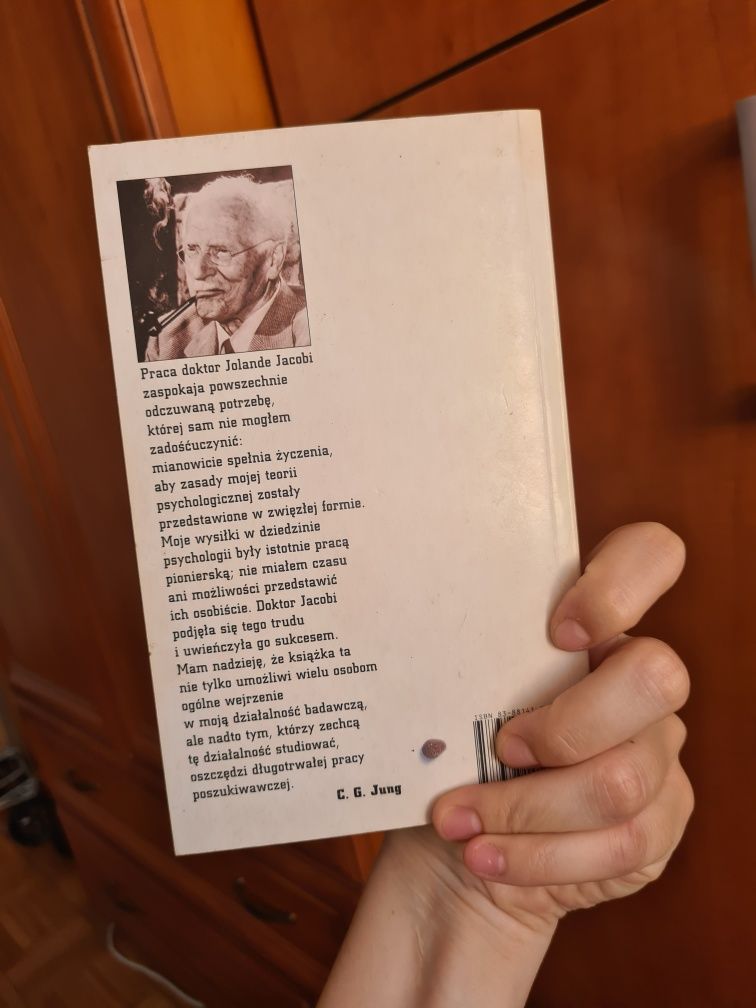 Praca doktor Jolande Jacobi
zaspokaja powszechnie
odczuwaną potrzebę,
której sam nie mogłem
zadośćuczynić:
mianowicie spełnia życzenia,
aby zasady mojej teorii
psychologicznej zostały
przedstawione w zwięzłej formie.
Moje wysiłki w dziedzinie
psychologii były istotnie pracą
pionierską; nie miałem czasu
ani możliwości przedstawić
ich osobiście. Doktor Jacobi
podjęła się tego trudu
i uwieńczyła go sukcesem.
Mam nadzieję, że książka ta
nie tylko umożliwi wielu osobom
ogólne wejrzenie
w moją działalność badawczą,
ale nadto tym, którzy zechcą
tę działalność studiować,
oszczędzi długotrwałej pracy
poszukiwawczej.
C. G. Jung
ISBN